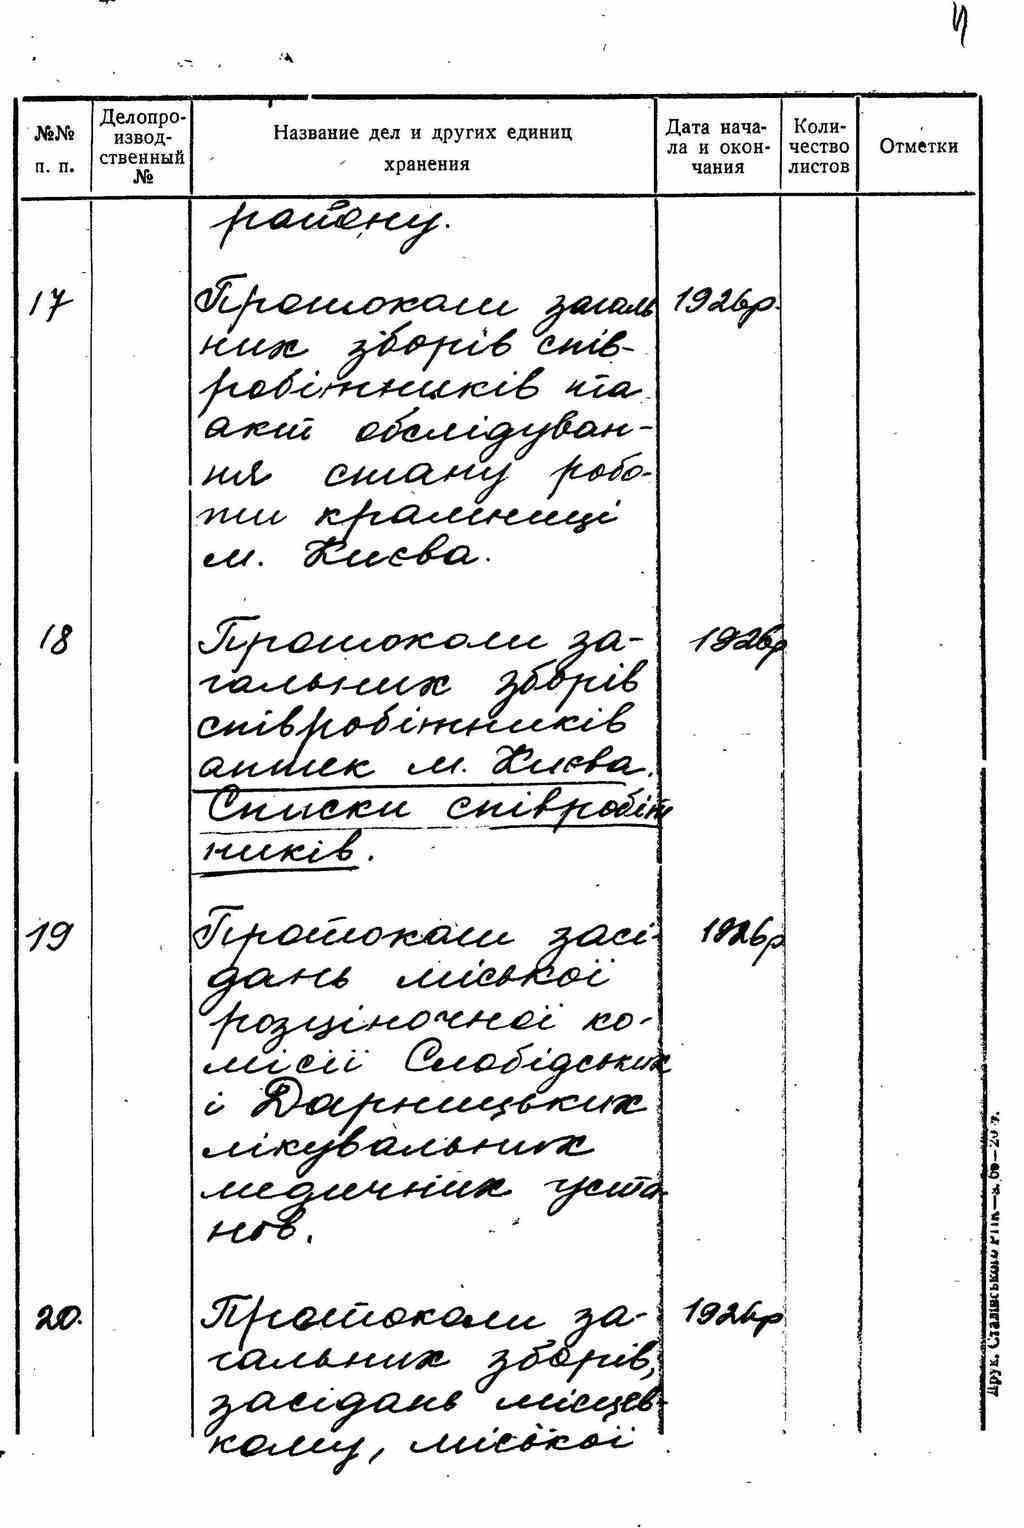 №№ п. п.
Делопро-
извод-
ственный
№
Название дел и других единиц
хранения
Дата нача-
ла и окон-
чания
Коли-
чество
листов
Отметки
району.
17 Протоколи загаль 1926р.
них зборів спів-
робітників та
акт обслідуван-
ня стану робо-
ти крамниці
м. Києва.
18 Протоколи за- 1926р
гальних зборів
співробітників
аптек м. Києва.
Списки співробіт
ників.
19 Протоколи засі- 1926р
дань міської
розціночної ко-
місії Слобідських
і Дарницьких
лікувальних
медичних уста-
нов.
20. Протоколи за- 1926р
гальних зборів,
засідань місцев-
кому, міської
Друк. Сталінського